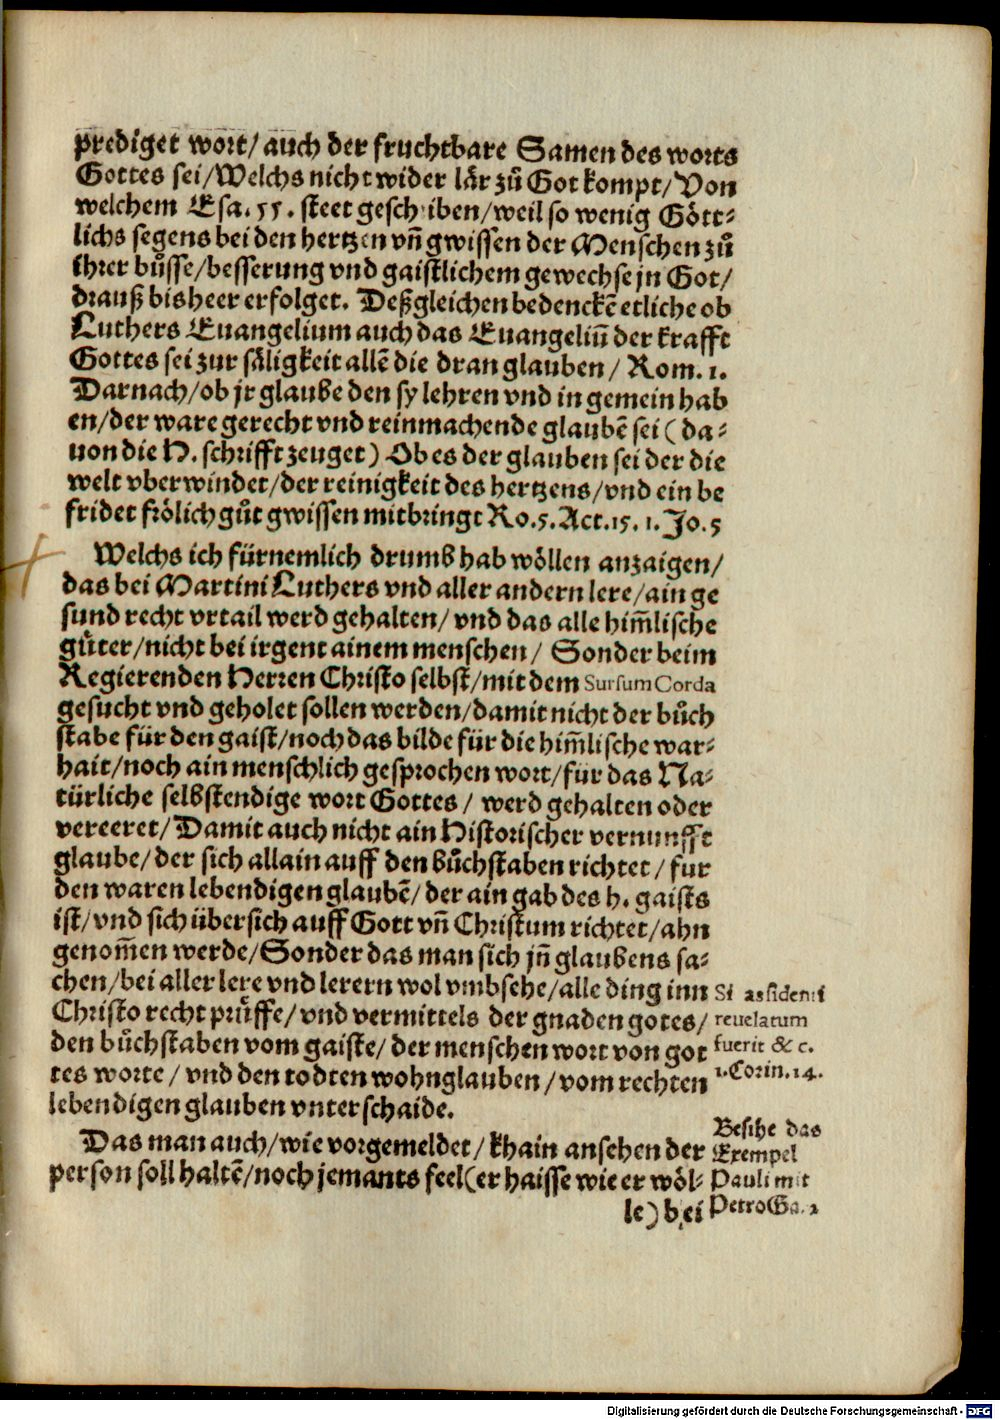 prediget wort/ auch der fruchtbare Samen des worts
Gottes sei/Welchs nicht wider lär zů Got kompt/Von
welchem Esa. 55. steet geschriben/weil so wenig Gött-
lichs segens bei den hertzen vñ gwissen der Menschen zů
ihrer bůsse/besserung vnd gaistlichem gewechse jn Got/
drauß bisheer erfolget. Deßgleichen bedenckẽ etliche ob
Luthers Euangelium auch das Euangeliũ der krafft
Gottes sei zur säligkeit allẽ die dran glauben/ Rom. 1.
Darnach/ob jr glaube den sy lehren vnd in gemein hab
en/der ware gerecht vnd reinmachende glaubẽ sei (da-
uon die H. schrifft zeuget) Ob es der glauben sei der die
welt vberwindet/der reinigkeit des hertzens/vnd ein be
fridet frölich gůt gwissen mitbringt Ro.5. Act.15. 1. Jo.5
Welchs ich fürnemlich drumb hab wöllen anzaigen/
das bei Martini Luthers vnd aller andern lere/ain ge
sund recht vrtail werd gehalten/ vnd das alle him̃lische
gůter/nicht bei irgent ainem menschen/ Sonder beim
Regierenden Herren Christo selbst/mit dem Sursum Corda
gesucht vnd geholet sollen werden/damit nicht der bůch
stabe für den gaist/noch das bilde für die him̃lische war-
hait/noch ain menschlich gesprochen wort/für das Na-
türliche selbstendige wort Gottes/ werd gehalten oder
vereeret/Damit auch nicht ain Historischer vernunfft
glaube/der sich allain auff den bůchstaben richtet/ fur
den waren lebendigen glaubẽ/der ain gab des h. gaists
ist/vnd sich übersich auff Gott vñ Christum richtet/ahn
genom̃en werde/Sonder das man sich jñ glaubens sa-
chen/bei aller lere vnd lerern wol vmbsehe/alle ding inn
Christo recht průffe/vnd vermittels der gnaden gotes/
den bůchstaben vom gaiste/der menschen wort von got
tes worte/ vnd den todten wohnglauben/vom rechten
lebendigen glauben vnterschaide.
Si assidenti
reuelatum
fuerit & c.
1.Corin.14.
Das man auch/wie vorgemeldet/khain ansehen der
person soll haltẽ/noch jemants feel(er haisse wie er wöl-
le) bei
Besihe das
Exempel
Pauli mit
Petro Ga. 2
Digitalisierung gefördert durch die Deutsche Forschungsgemeinschaft - DFG